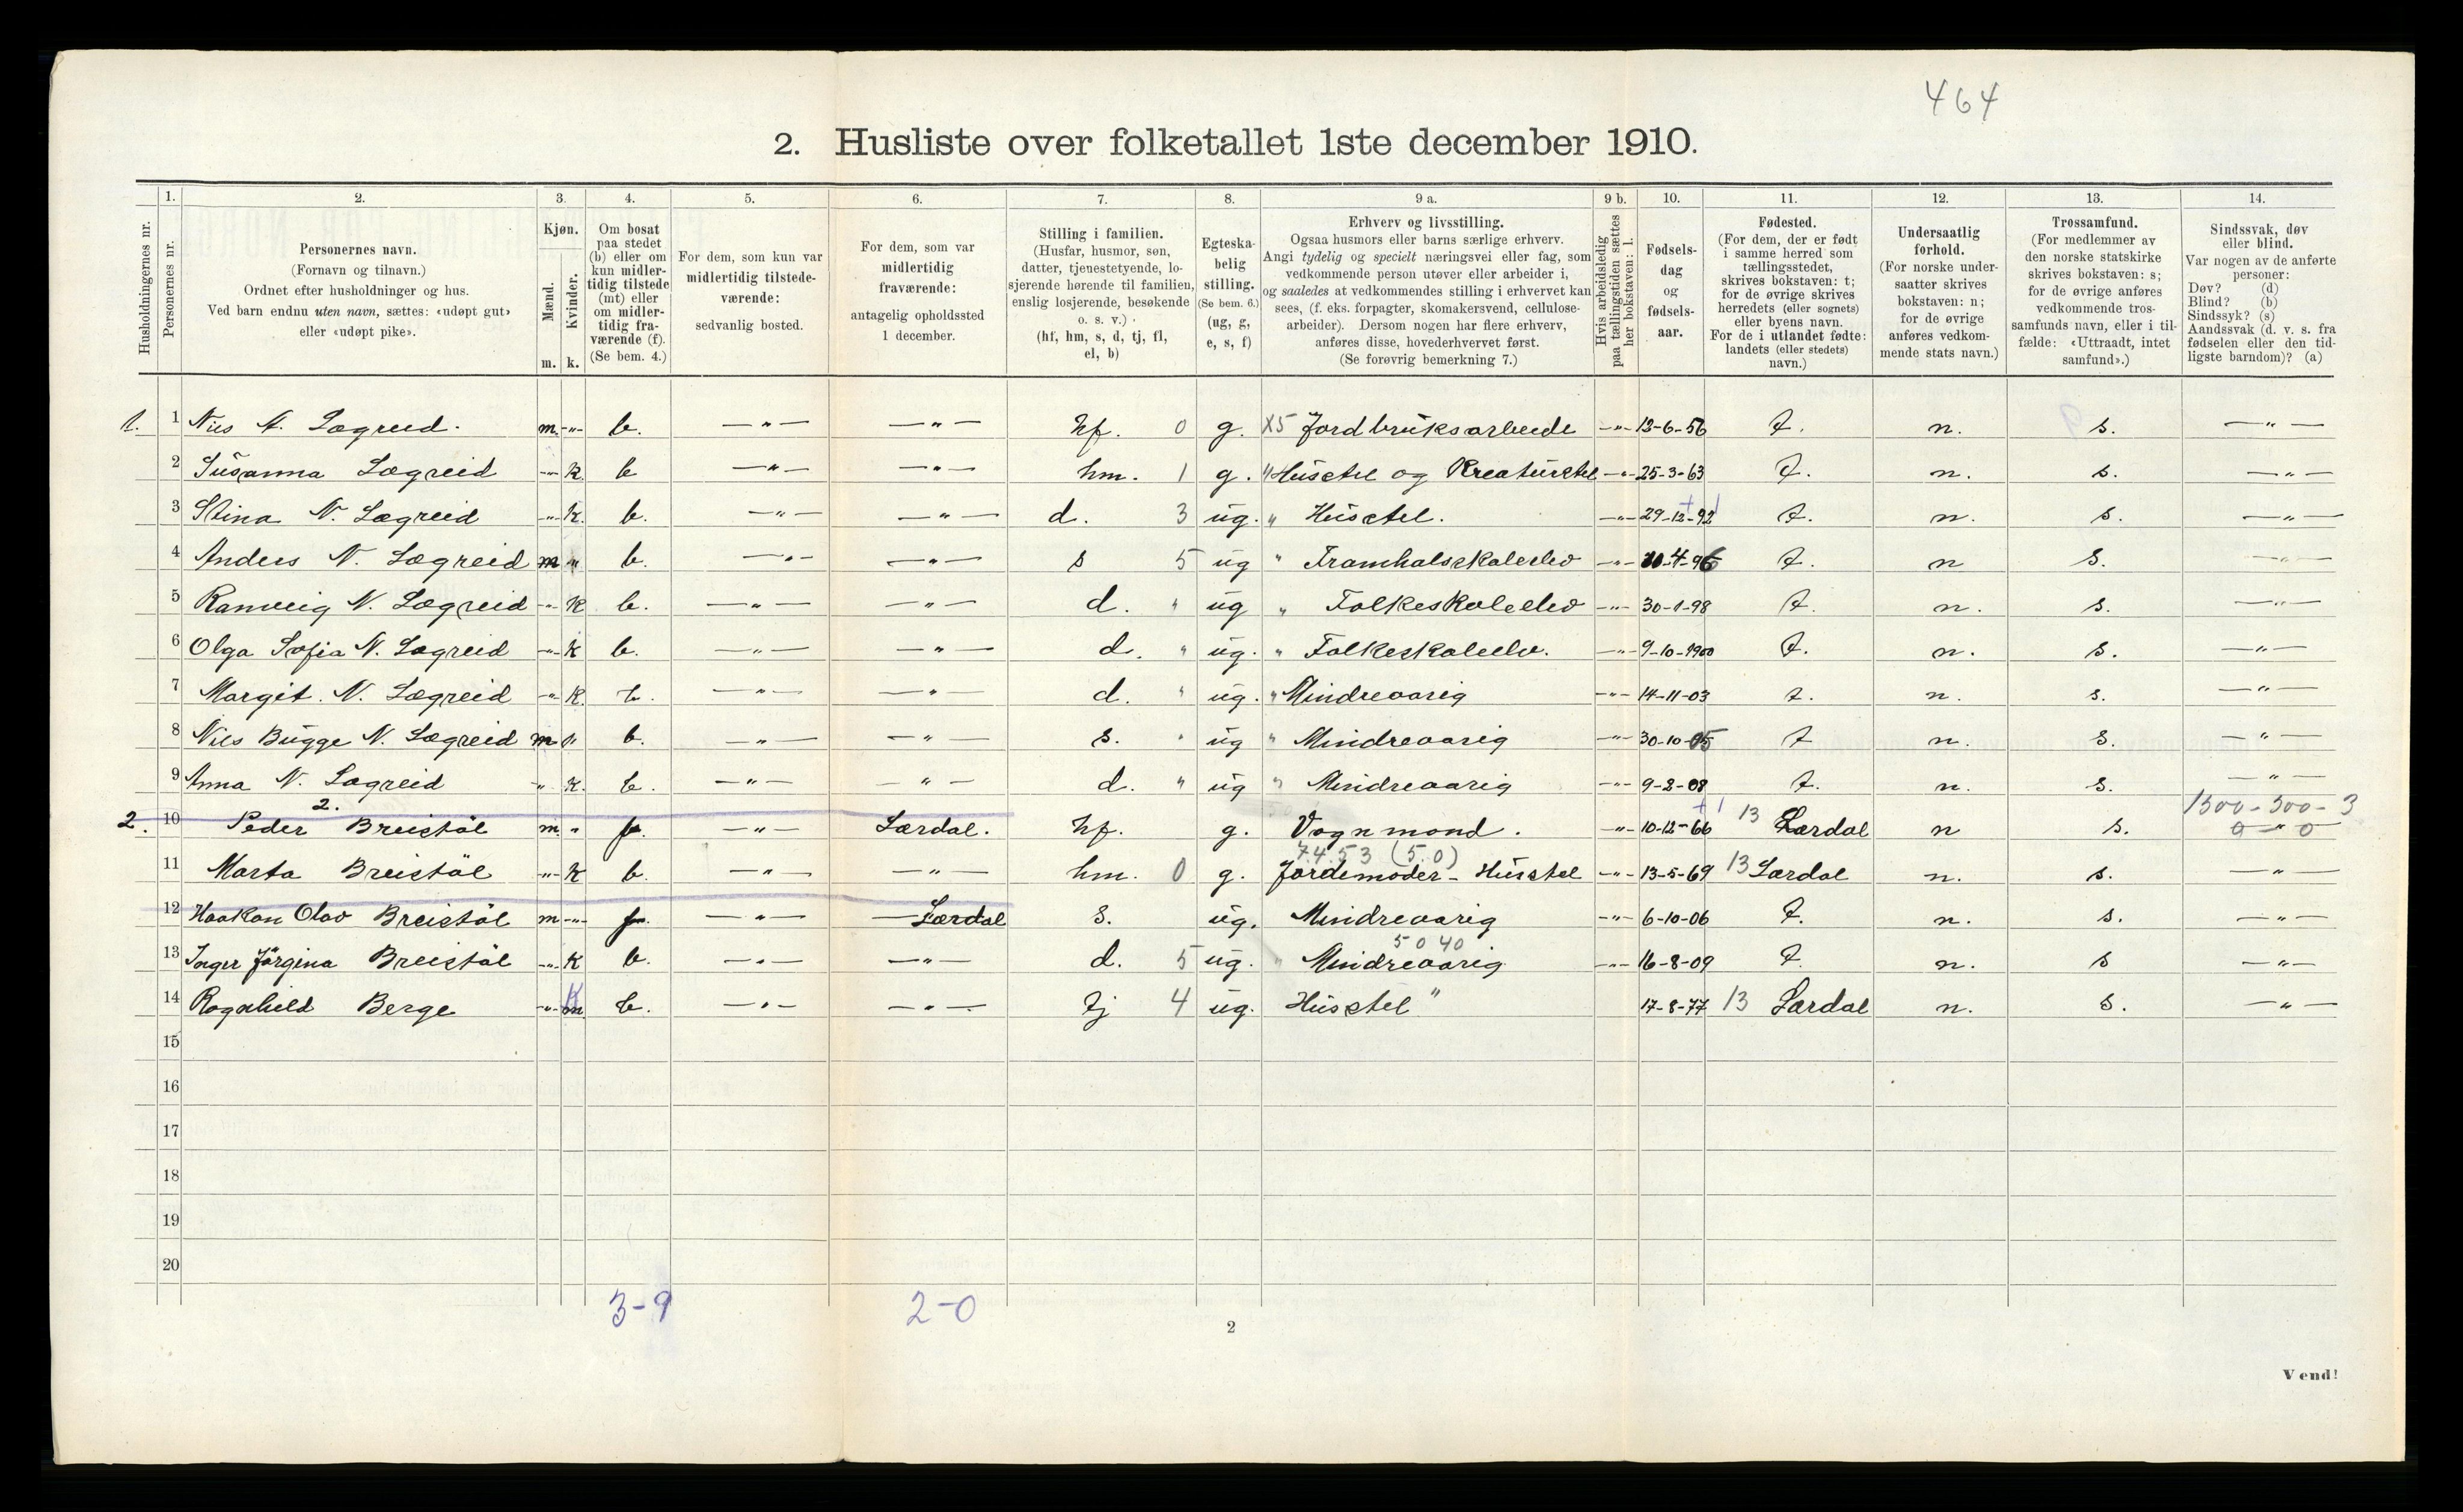 464
2. Husliste over folketallet 1ste december 1910.
Husholdningernes nr.
1. Personernes nr.
2. Personernes navn. (Fornavn og tilnavn.) Ordnet efter husholdninger og hus. Ved barn endnu uten navn, sættes: «udøpt gut» eller «udøpt pike».
3. Kjøn. Mænd. m. Kvinder. k.
4. Om bosat paa stedet (b) eller om kun midlertidig tilstede (mt) eller om midlertidig fraværende (f). (Se bem. 4.)
5. For dem, som kun var midlertidig tilstedeværende: sedvanlig bosted.
6. For dem, som var midlertidig fraværende: antagelig opholdssted 1 december.
7. Stilling i familien. (Husfar, husmor, søn, datter, tjenestetyende, losjerende hørende til familien, enslig losjerende, besøkende o. s. v.) (hf, hm, s, d, tj, fl, el, b)
8. Egteskabelig stilling. (Se bem. 6.) (ug, g, e, s, f)
9 a. Erhverv og livsstilling. Ogsaa husmors eller barns særlige erhverv. Angi tydelig og specielt næringsvei eller fag, som vedkommende person utøver eller arbeider i, og saaledes at vedkommendes stilling i erhvervet kan sees, (f. eks. forpagter, skomakersvend, cellulosearbeider). Dersom nogen har flere erhverv, anføres disse, hovederhvervet først. (Se forøvrig bemerkning 7.)
9 b. Hvis arbeidsledig paa tællingstiden sættes her bokstaven: l.
10. Fødselsdag og fødselsaar.
11. Fødested. (For dem, der er født i samme herred som tællingsstedet, skrives bokstaven: t; for de øvrige skrives herredets (eller sognets) eller byens navn. For de i utlandet fødte: landets (eller stedets) navn.)
12. Undersaatlig forhold. (For norske undersaatter skrives bokstaven: n; for de øvrige anføres vedkommende stats navn.)
13. Trossamfund. (For medlemmer av den norske statskirke skrives bokstaven: s; for de øvrige anføres vedkommende trossamfunds navn, eller i tilfælde: «Uttraadt, intet samfund».)
14. Sindssvak, døv eller blind. Var nogen av de anførte personer: Døv? (d) Blind? (b) Sindssyk? (s) Aandssvak (d. v. s. fra fødselen eller den tidligste barndom)? (a)
1. 1 Nils A. Lægreid. m. -"- b. -"- -"- hf. 0 g. X5 Jordbruksarbeide -"- 12-6-56 t. n. s. -"-
2 Susanna Lægreid -"- k. b -"- -"- hm. 1 g. " Husstel og Kreaturstel -"- 25-3-63 t. n. s. -"-
3 Stina N. Lægreid -"- k. b. -"- -"- d. 3 ug. " Husstel. -"- 29-12-92 t. n. s. -"-
4 Anders N. Lægreid m " b. -"- -"- s 5 ug " Framhalsskolelev -"- 10-4-96 t. n s. -"-
5 Ranveig N. Lægreid -"- k b. -"- -"- d. " ug " Folkeskolelev -"- 30-1-98 t. n. s. -"-
6 Olga Sofia N. Lægreid -"- k b. -"- -"- d. " ug. " Folkeskolelev. -"- 9-10-1900 t. n. s. -"-
7 Margit. N. Lægreid -"- k. b. -"- -"- d. " ug. " Mindreaarig -"- 14-11-03 t. n. s. -"-
8 Nils Bugge N. Lægreid m " b. -"- -"- s. " ug " Mindreaarig -"- 30-10-05 t n. s. -"-
9 Anna N. Lægreid " k. b. -"- " - d. " ug " Mindreaarig -"- 9-2-08 t. n. s. -"-
2. 1500-500-3
2. 10 Peder Breistøl m " f. -"- Lærdal. hf. g. Vognmand. -"- 10-12-66 13 Lærdal n s. 0 " 0
74.53 (5.0)
11 Marta Breistøl -"- k b. -"- -"- hm. 0 g. Jordemoder - Husstel -"- 13-5-69 13 Lærdal n. s. -"-
12 Haakon Olav Breistøl m -"- f. -"- Lærdal s. ug. Mindreaarig -"- 6-10-06 t. n. s. -"-
5 0 40
13 Inger Jørgina Breistøl -"- k b. -"- -"- d. 5 ug. " Mindreaarig -"- 16-8-09 t. n. s -"-
14 Ragnhild Berge -"- k b. -"- -"- tj 4 ug. Husstel " 17-8-77 13 Lærdal n. s. -"-
15
16
17
18
19
20
3-9 2-0
2
Vend!